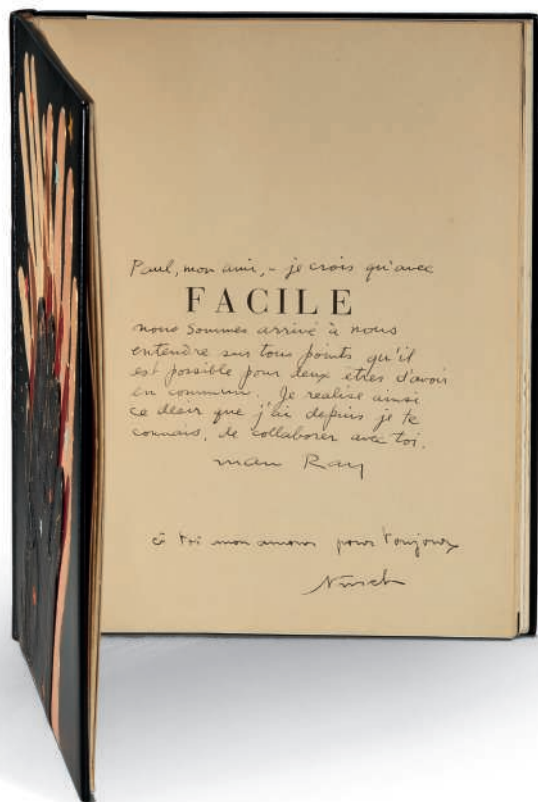 Paul, mon ami, - je crois qu'avec
FACILE
nous sommes arrivé à nous
entendre sur tous points qu'il
est possible pour deux etres d'avoir
en commun. Je realise ainsi
ce désir que j'ai depuis je te
connais, de collaborer avec toi.
man Ray
à toi mon amour pour toujours
Nusch